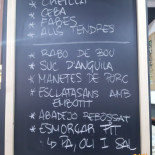 * CABELLA
* CEBA
* FABES
* ALLS TENDRES
* RABO DE BOU
* SUC D'ANGUILA
* MANETES DE PORC
* ESCLATASANS AMB
EMBOTIT
* ABADEJO REBOSSAT
* ESMORZAR
PA, OLI I SAL